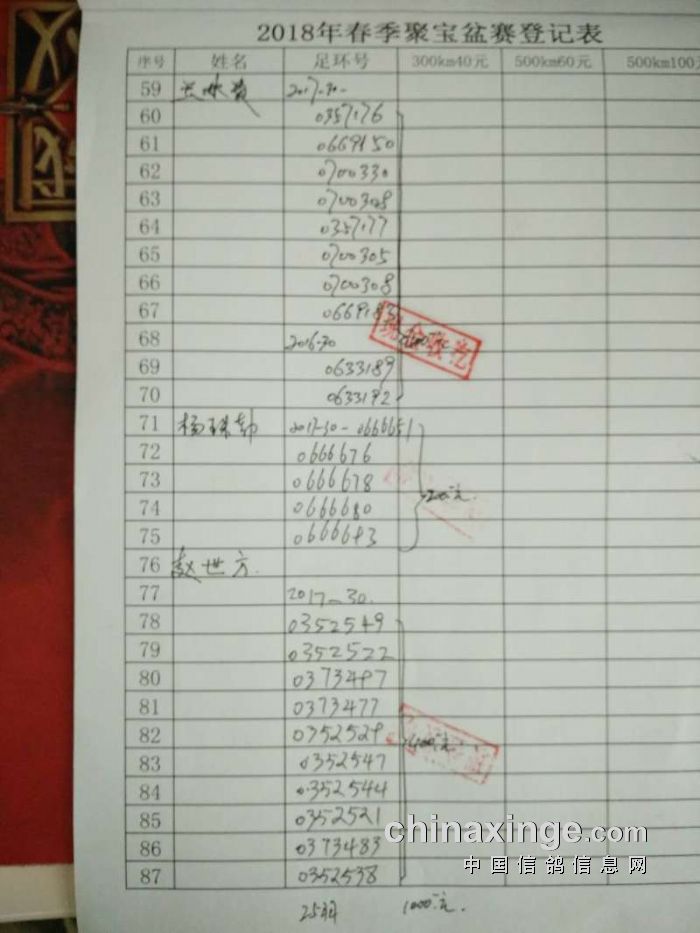 2018年春季聚宝盆赛登记表
序号 姓名 足环号 300km40元 500km60元 500km100
59 2017-30-
60 0357176
61 0669150
62 0700330
63 0700308
64 0357177
65 0700305
66 0700308
67 0669183
68 2016-30
69 0633189
70 0633192
71 2017-30-0666651
72 0666676
73 0666678
74 0666680
75 0666643 200元.
76 赵世方.
77 2017-30.
78 0352549
79 0352522
80 0373497
81 0373477
82 0352529 400元
83 0352547
84 0352544
85 0352521
86 0373483
87 0352538
25羽 1000元.
chinaxinge.com
中国信鸽信息网